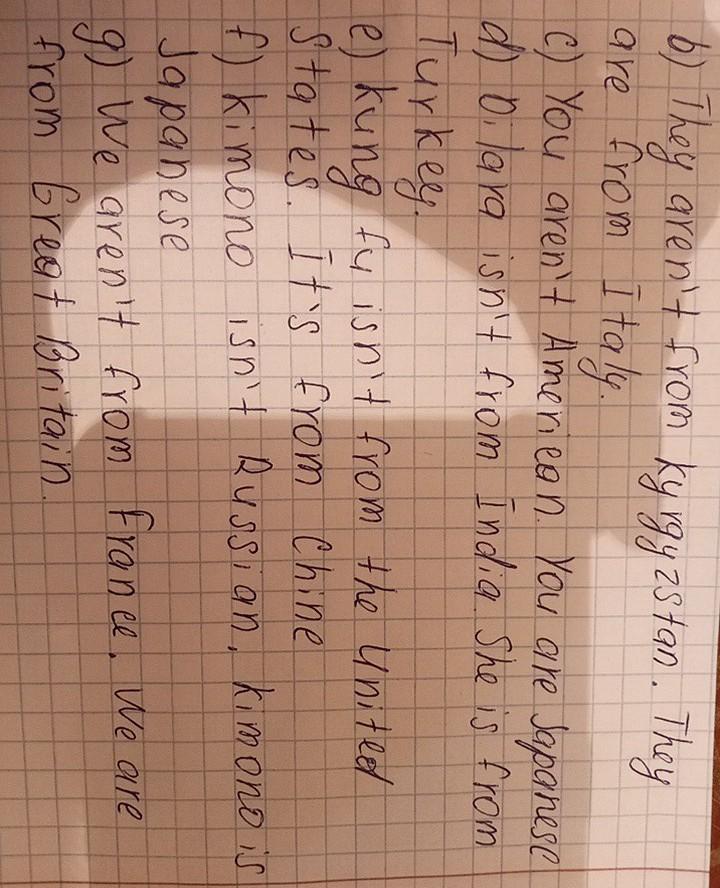 b) They aren't from Kyrgyzstan. They
are from Italy.
c) You aren't American. You are Japanese
d) Dilara isn't from India. She is from
Turkey.
e) Kung fu isn't from the United
States. It's from Chine
f) Kimono isn't Russian, kimono is
Japanese
g) We aren't from France. We are
from Great Britain.